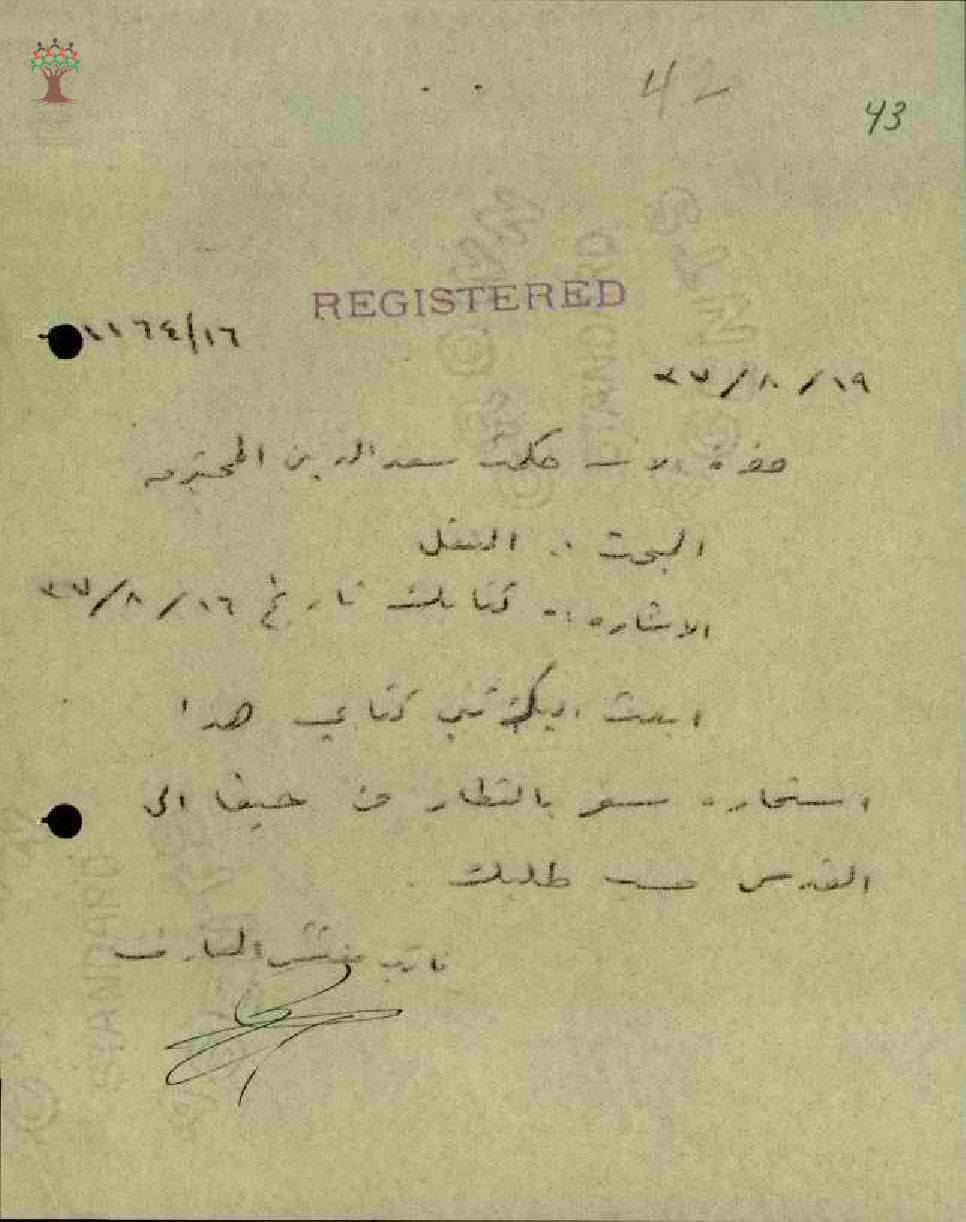 4-
43
REGISTERED
١١٦٤/١٦
٣٧/٨/١٩
حضرة الانسه حكمت سعد الدين المحترمه
البحث :. النقل
الاشاره :- كتابك تاريخ ٣٧/٨/١٦
ابعث اليك كتابي هذا
استماره سفر بالقطار من حيفا الى
القدس حسب طلبك .
نائب مفتش المعارف